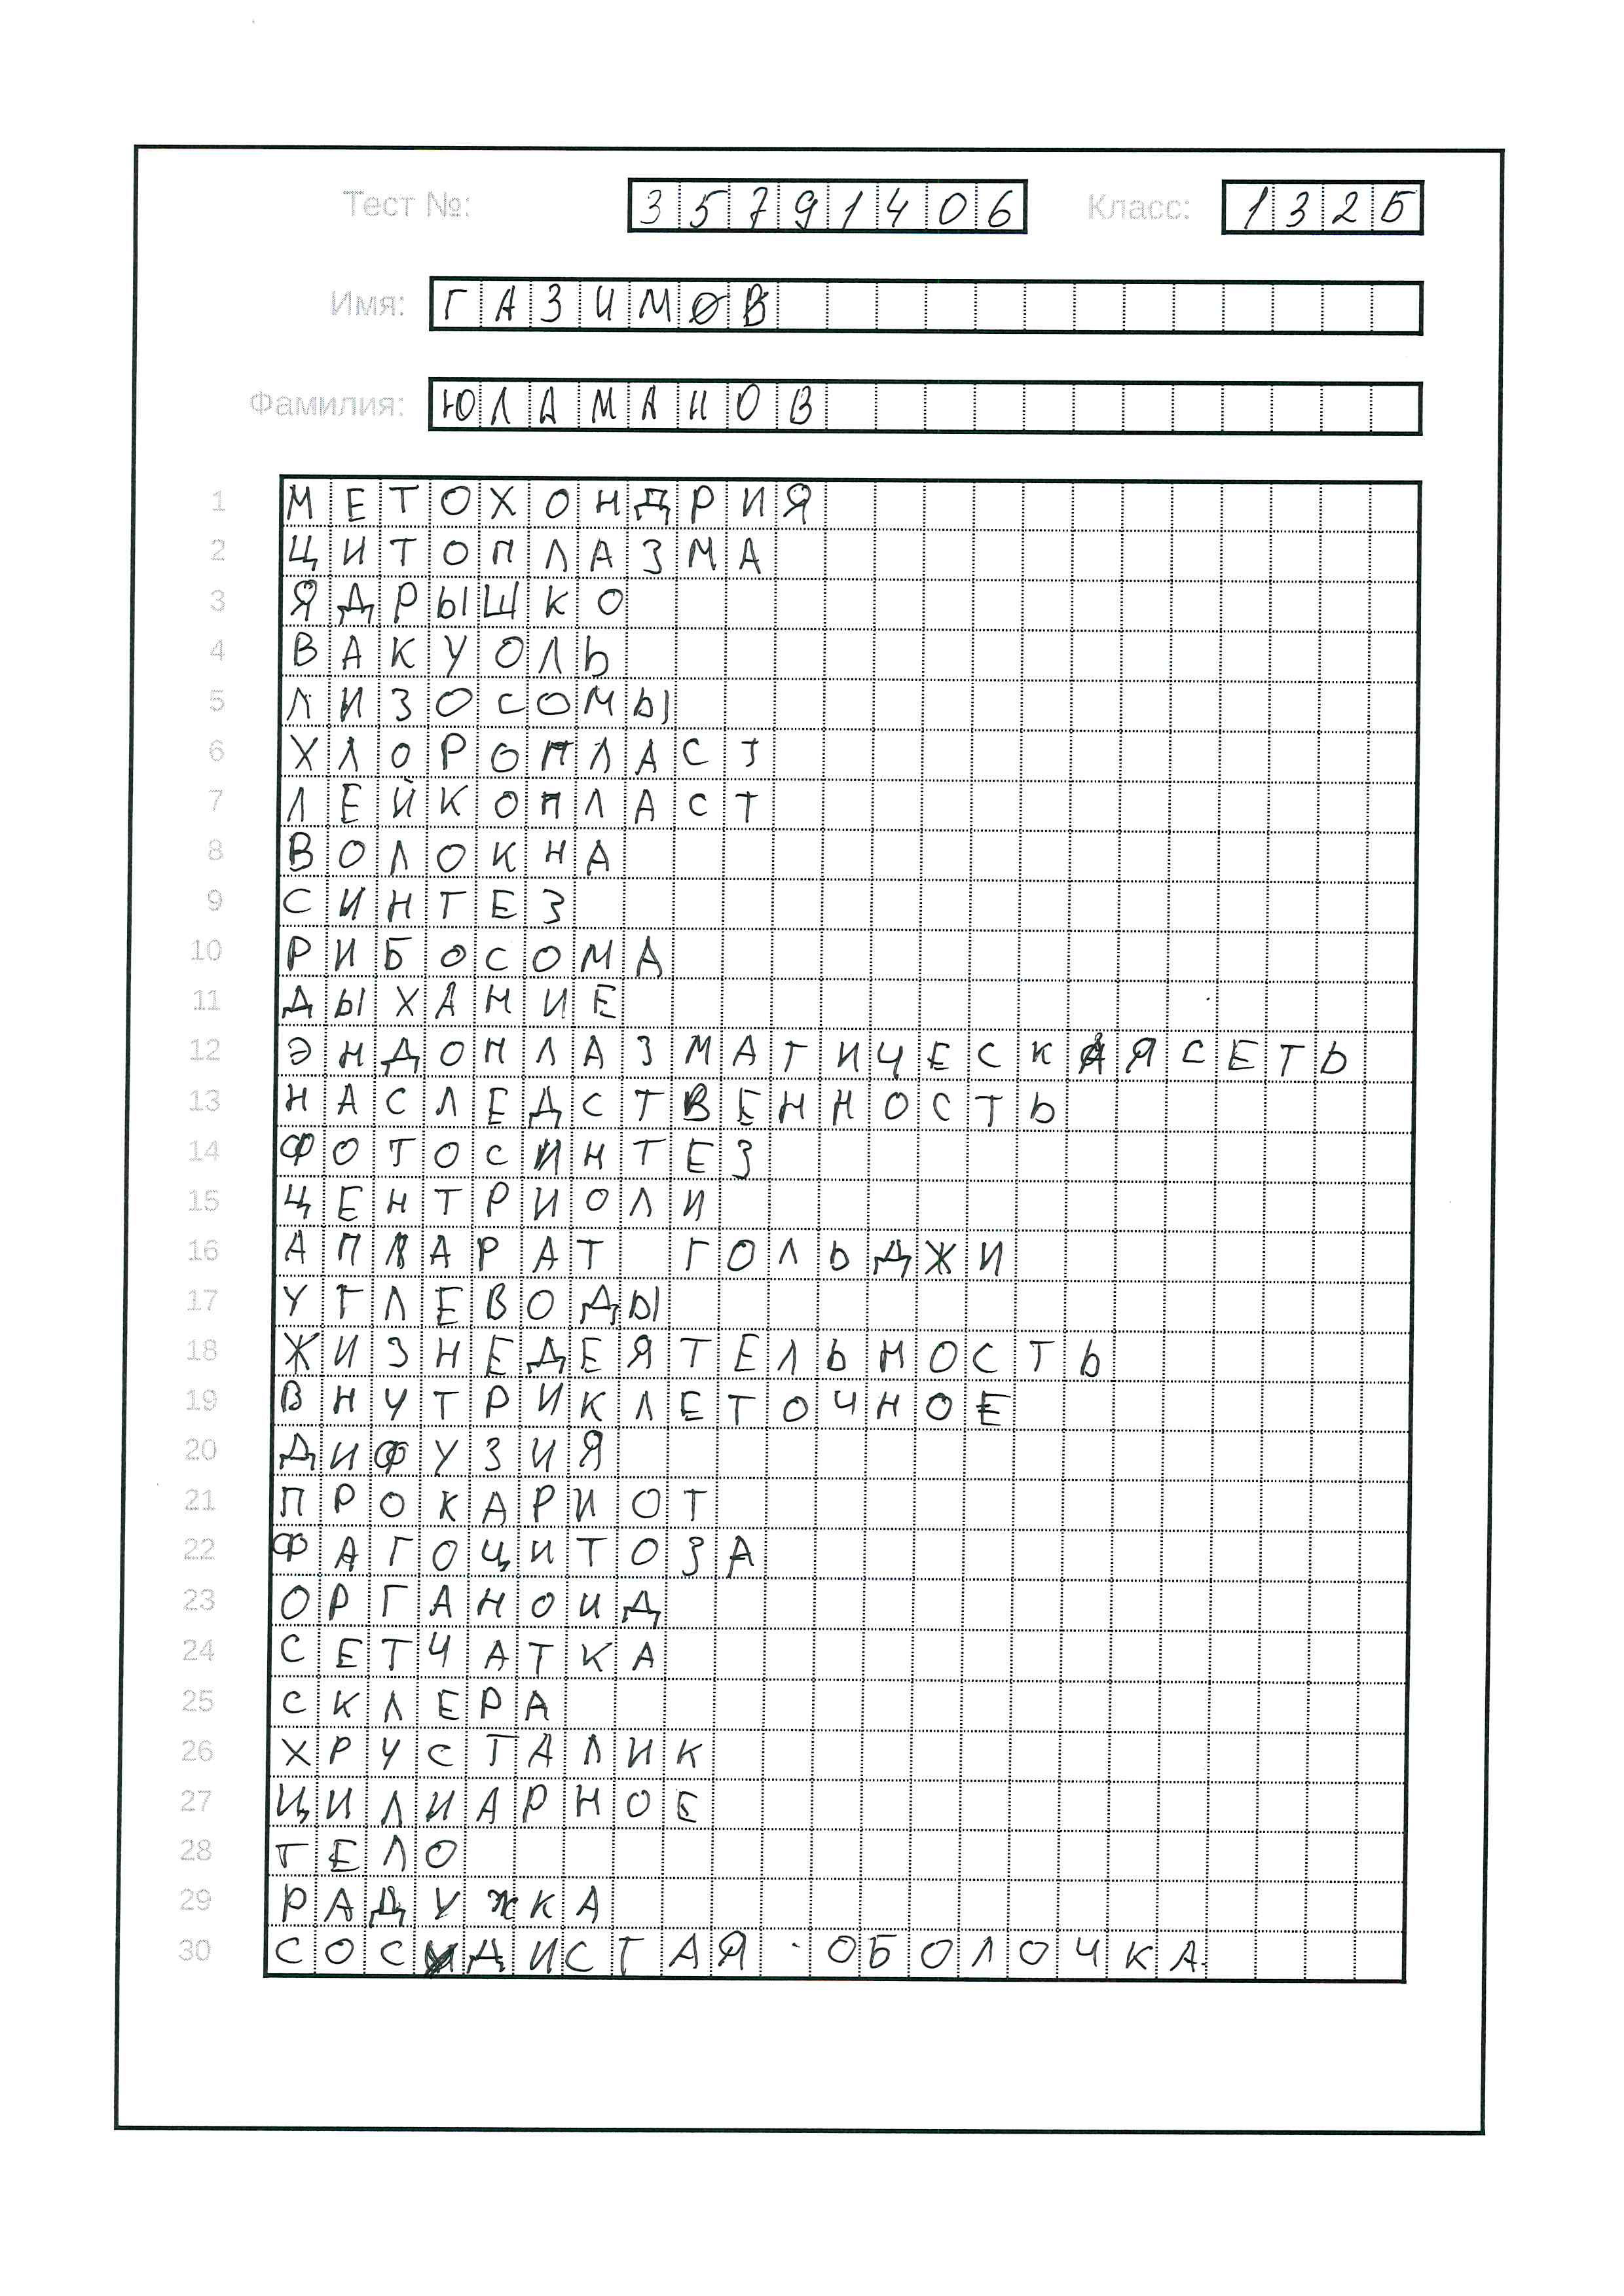 Тест №: 35791406 Класс: 1325
Имя: ГАЗИМОВ
Фамилия: ЮЛАМАНОВ
1 МЕТОХОНДРИЯ
2 ЦИТОПЛАЗМА
3 ЯДРЫШКО
4 ВАКУОЛЬ
5 ЛИЗОСОМЫ
6 ХЛОРОПЛАСТ
7 ЛЕЙКОПЛАСТ
8 ВОЛОКНА
9 СИНТЕЗ
10 РИБОСОМА
11 ДЫХАНИЕ
12 ЭНДОПЛАЗМАТИЧЕСКАЯСЕТЬ
13 НАСЛЕДСТВЕННОСТЬ
14 ФОТОСИНТЕЗ
15 ЦЕНТРИОЛИ
16 АППАРАТ ГОЛЬДЖИ
17 УГЛЕВОДЫ
18 ЖИЗНЕДЕЯТЕЛЬНОСТЬ
19 ВНУТРИКЛЕТОЧНОЕ
20 ДИФУЗИЯ
21 ПРОКАРИОТ
22 ФАГОЦИТОЗА
23 ОРГАНОИД
24 СЕТЧАТКА
25 СКЛЕРА
26 ХРУСТАЛИК
27 ЦИЛИАРНОЕ
28 ТЕЛО
29 РАДУЖКА
30 СОСУДИСТАЯ ОБОЛОЧКА